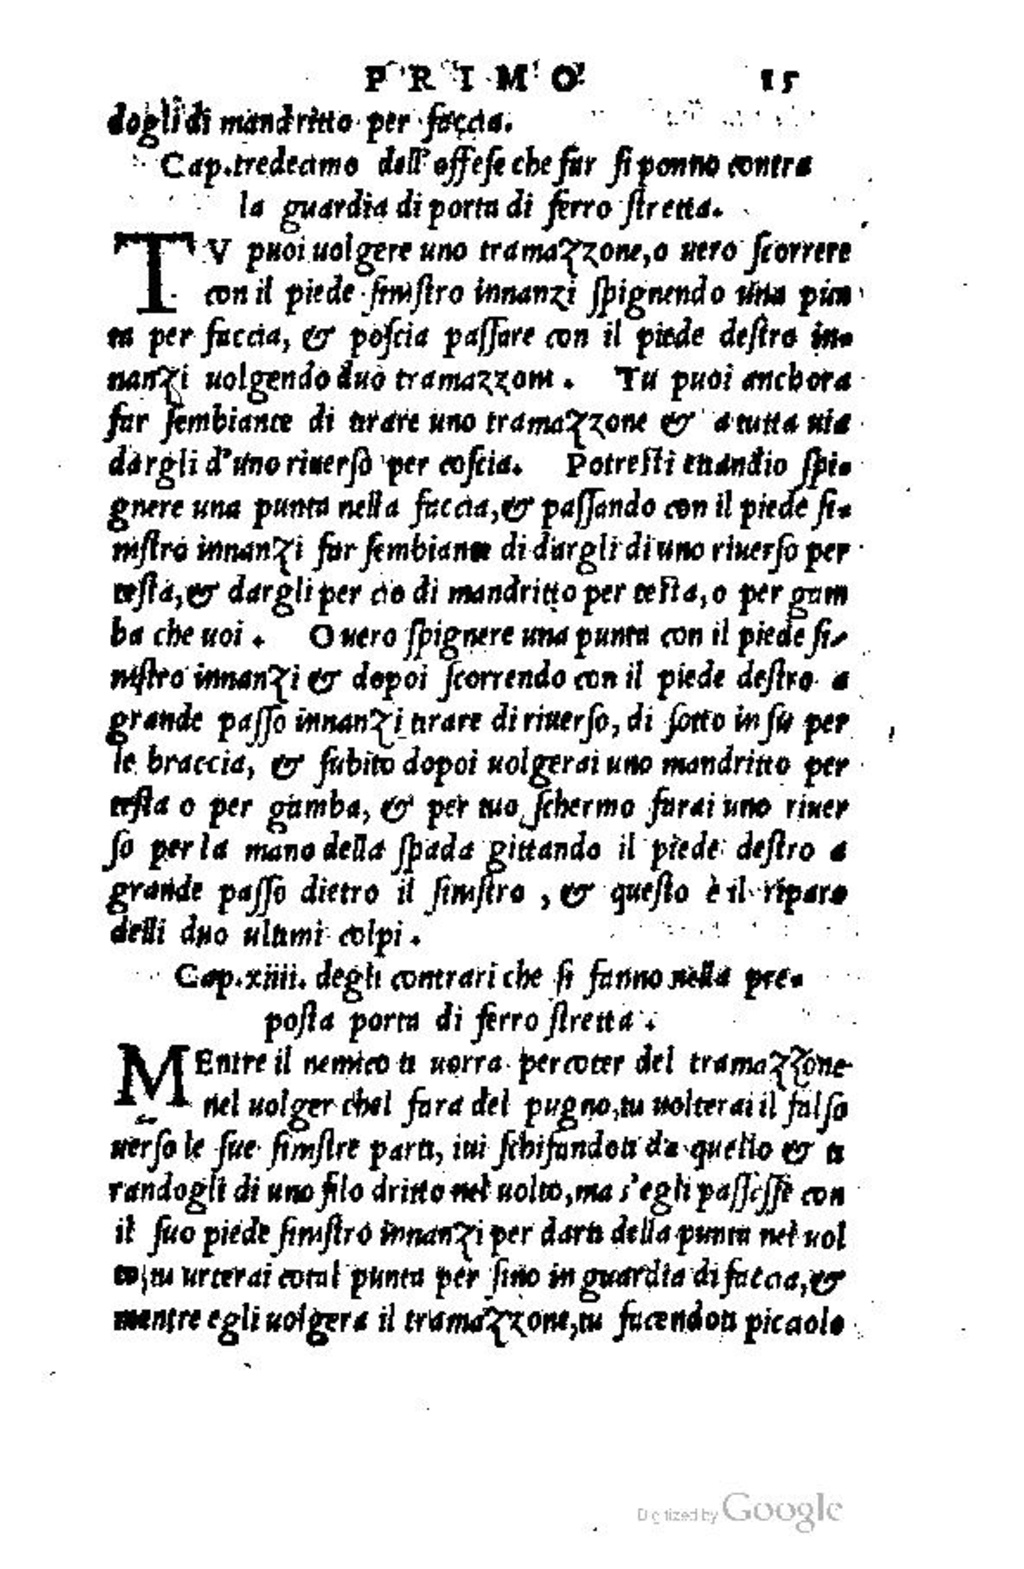 PRIMO 15
dogli di mandritto per faccia.
Cap.tredecimo dell'offese che far si ponno contra
la guardia di porta di ferro stretta.
TV puoi uolgere uno tramazzone, o uero scorrere
con il piede sinistro innanzi spignendo una pun
ta per faccia, & poscia passare con il piede destro in-
nanzi uolgendo duo tramazzoni. Tu puoi anchora
far sembiante di tirare uno tramazzone & a tutta uia
dargli d'uno riuerso per coscia. Potresti etiandio spi-
gnere una punta nella faccia, & passando con il piede si-
nistro innanzi far sembiante di dargli di uno riuerso per
testa, & dargli per cio di mandritto per testa, o per gam
ba che uoi. Ouero spignere una punta con il piede si-
nistro innanzi & dopoi scorrendo con il piede destro a
grande passo innanzi tirare di riuerso, di sotto in su per
le braccia, & subito dopoi uolgerai uno mandritto per
testa o per gamba, & per tuo schermo farai uno riuer
so per la mano della spada gittando il piede destro a
grande passo dietro il sinistro, & questo è il riparo
delli duo ultimi colpi.
Cap.xiiii. degli contrari che si fanno nella pre-
posta porta di ferro stretta.
MEntre il nemico ti uorra percoter del tramazzone
nel uolger chel fara del pugno, tu uolterai il falso
uerso le sue sinistre parti, iui schifandoti da quello & ti
randogli di uno filo dritto nel uolto, ma s'egli passesse con
il suo piede sinistro innanzi per darti della punta nel uol
to, tu urterai cotal punta per sino in guardia di faccia, &
mentre egli uolgera il tramazzone, tu facendoti picciolo
Digitized by Google